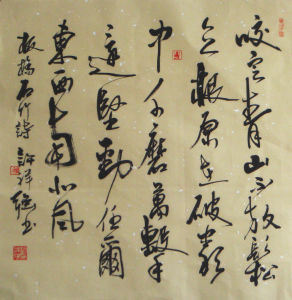 咬定青山不放鬆
立根原在破岩
中千磨萬擊
還堅勁任爾
東西南北風
板橋石竹詩
許 書